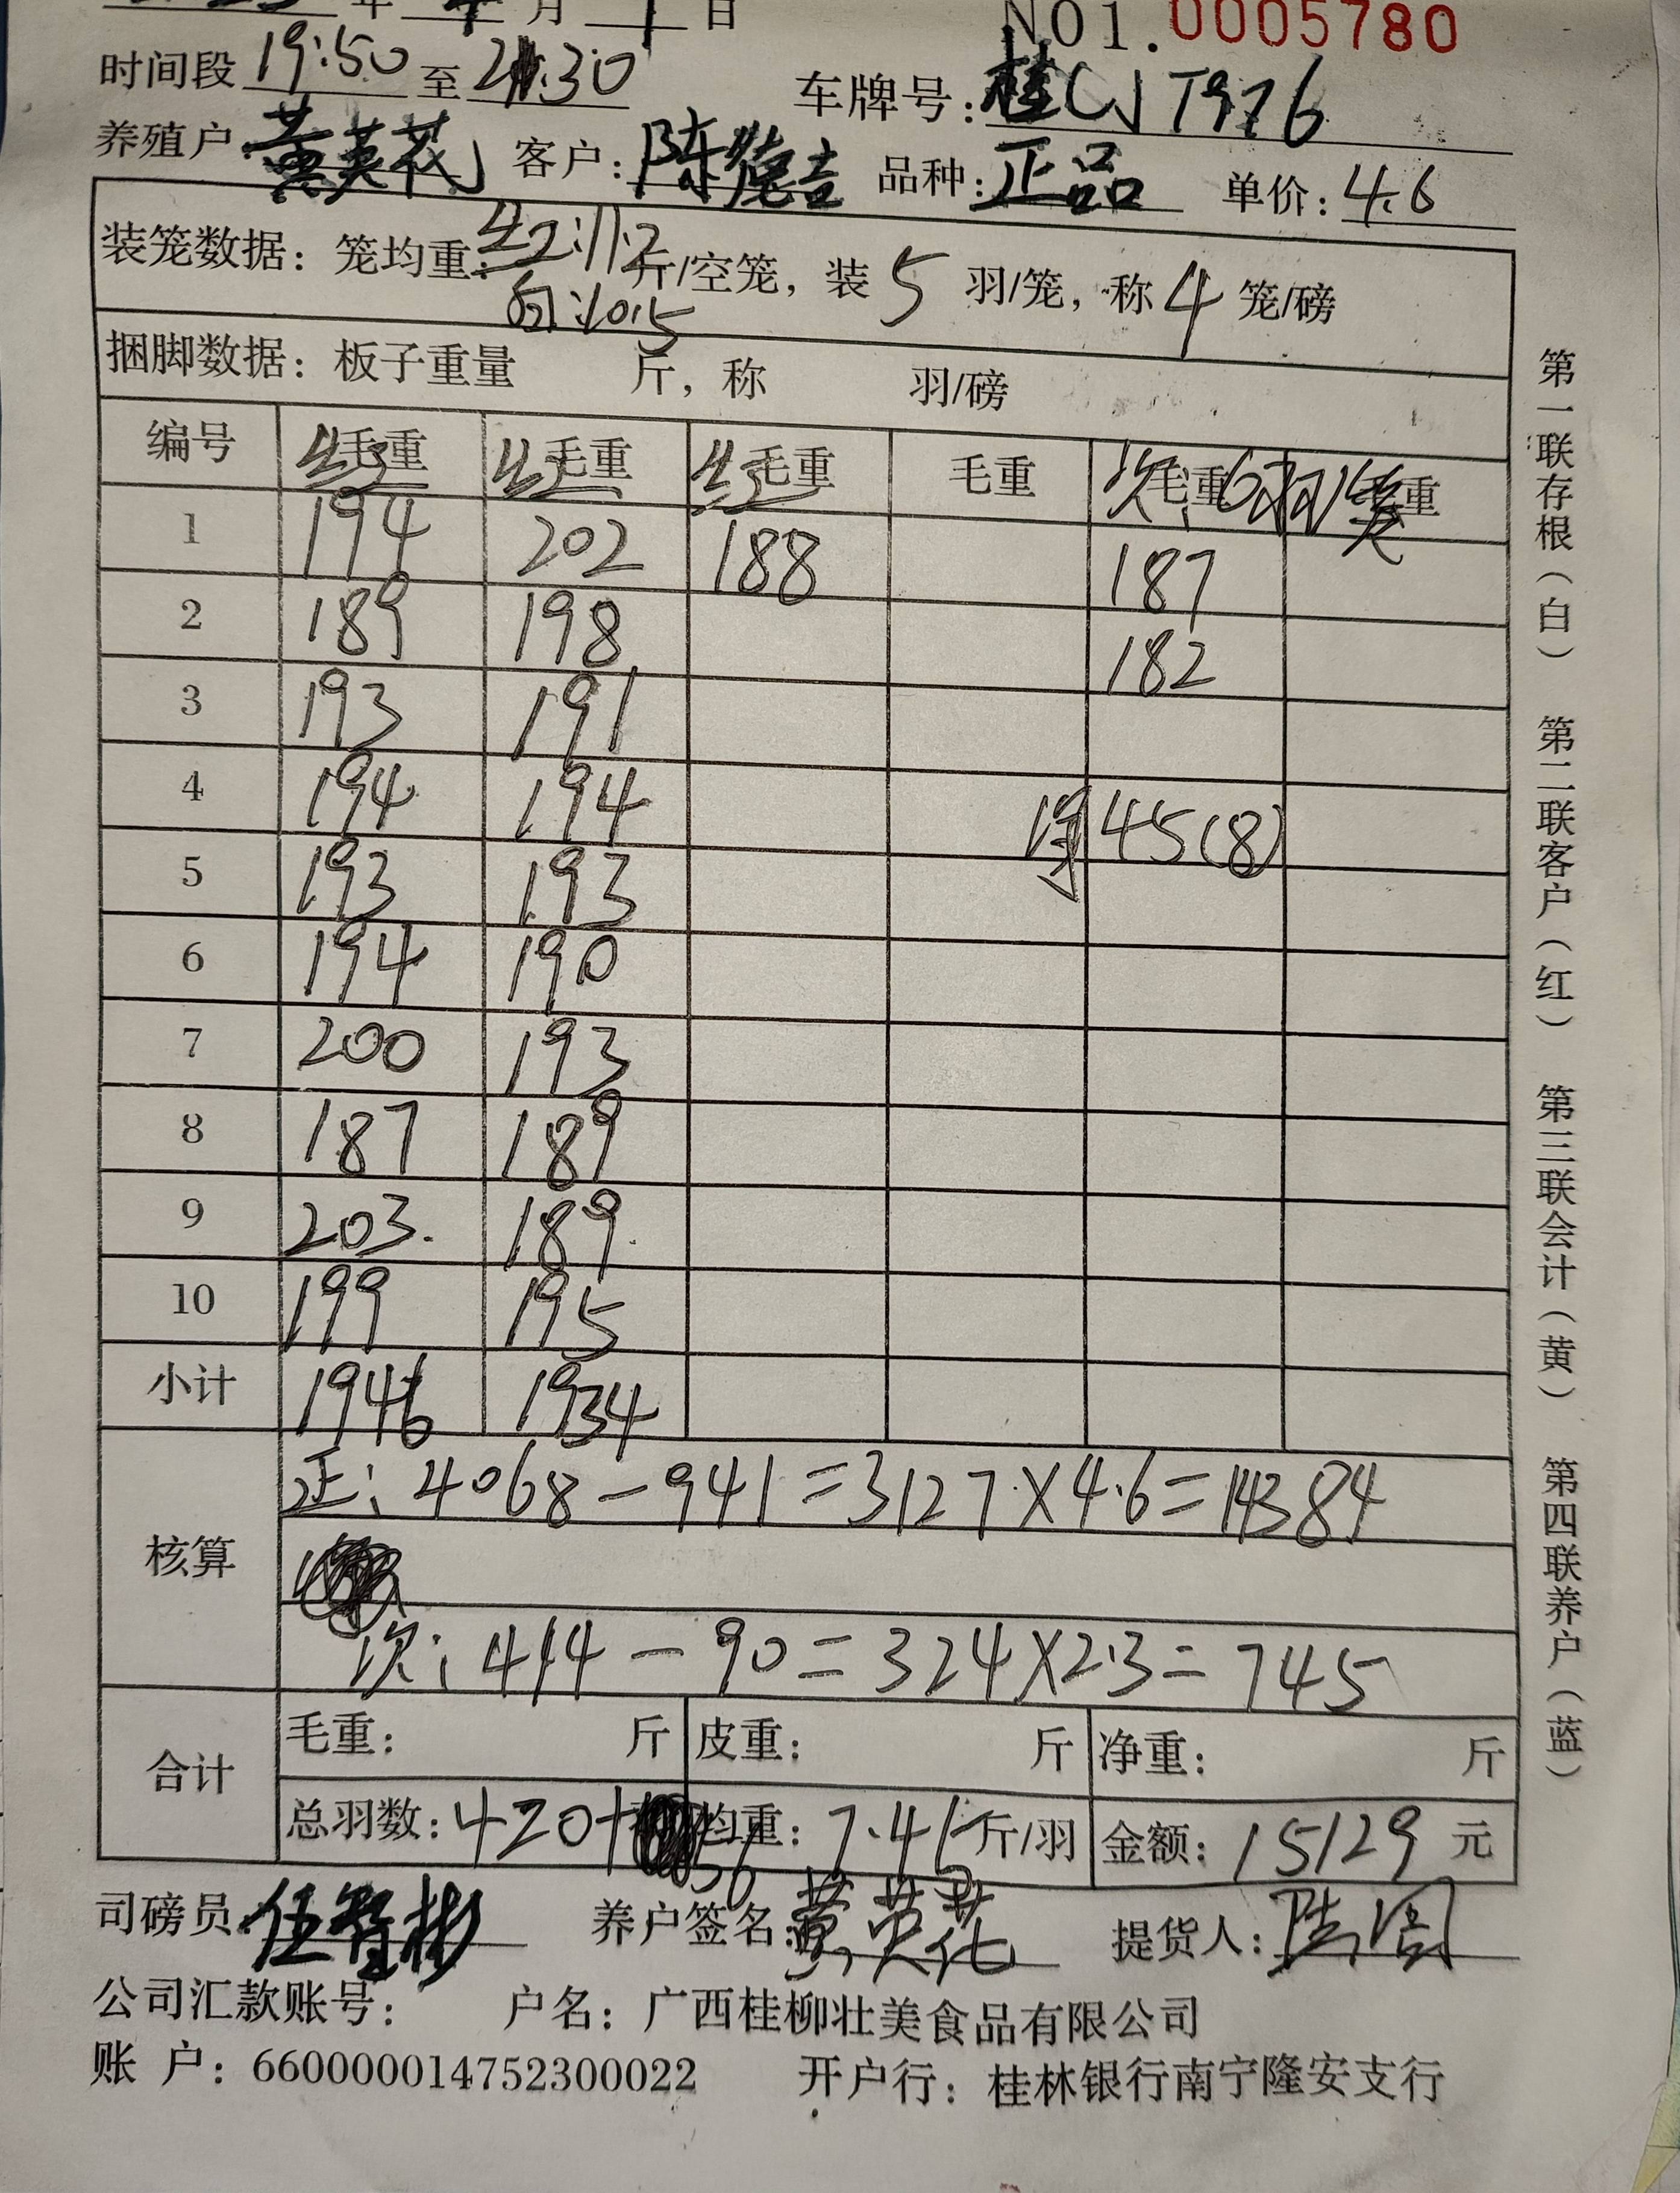 年 4 月 1 日 NO1.0005780
时间段 19:50 至 21:30 车牌号: 桂CJT976
养殖户 黄英花 客户: 陈德吉 品种: 正品 单价: 4.6
装笼数据: 笼均重: 红:11.2 斤/空笼, 装 5 羽/笼, 称 4 笼/磅
白:10.5
捆脚数据: 板子重量 斤, 称 羽/磅
编号 红 毛重 红 毛重 红 毛重 毛重 次: 毛重 6羽/笼 重
1 194 202 188 187
2 189 198 182
3 193 191
4 194 194 净 45(8)
5 193 193
6 194 190
7 200 193
8 187 189
9 203. 189.
10 199 195
小计 1946 1934
核算 正: 4068-941=3127×4.6=14384
次: 414-90=324×2.3=745
合计 毛重: 斤 皮重: 斤 净重: 斤
总羽数: 420+36 均重: 7.45 斤/羽 金额: 15129 元
司磅员 伍智彬 养户签名: 黄英花 提货人: 陆
公司汇款账号: 户名: 广西桂柳壮美食品有限公司
账 户: 660000014752300022 开户行: 桂林银行南宁隆安支行
第一联存根(白) 第二联客户(红) 第三联会计(黄) 第四联养户(蓝)